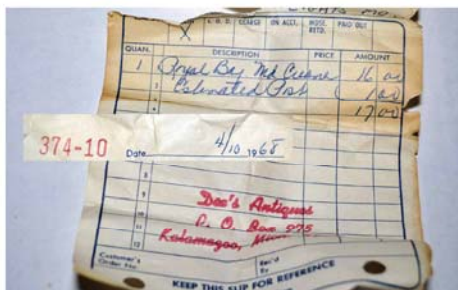 C.O.D. CHARGE ON ACCT. MDSE. RETD. PAID OUT
X
QUAN. DESCRIPTION PRICE AMOUNT
1 Royal Bay 16 00
Estimated Post 1 00
17 00
374-10 Date 4/10 1968
8
9
10
11
12
Dee's Antiques
P. O. Box 975
Kalamazoo,
Customer's Order No. Rec'd By
KEEP THIS SLIP FOR REFERENCE